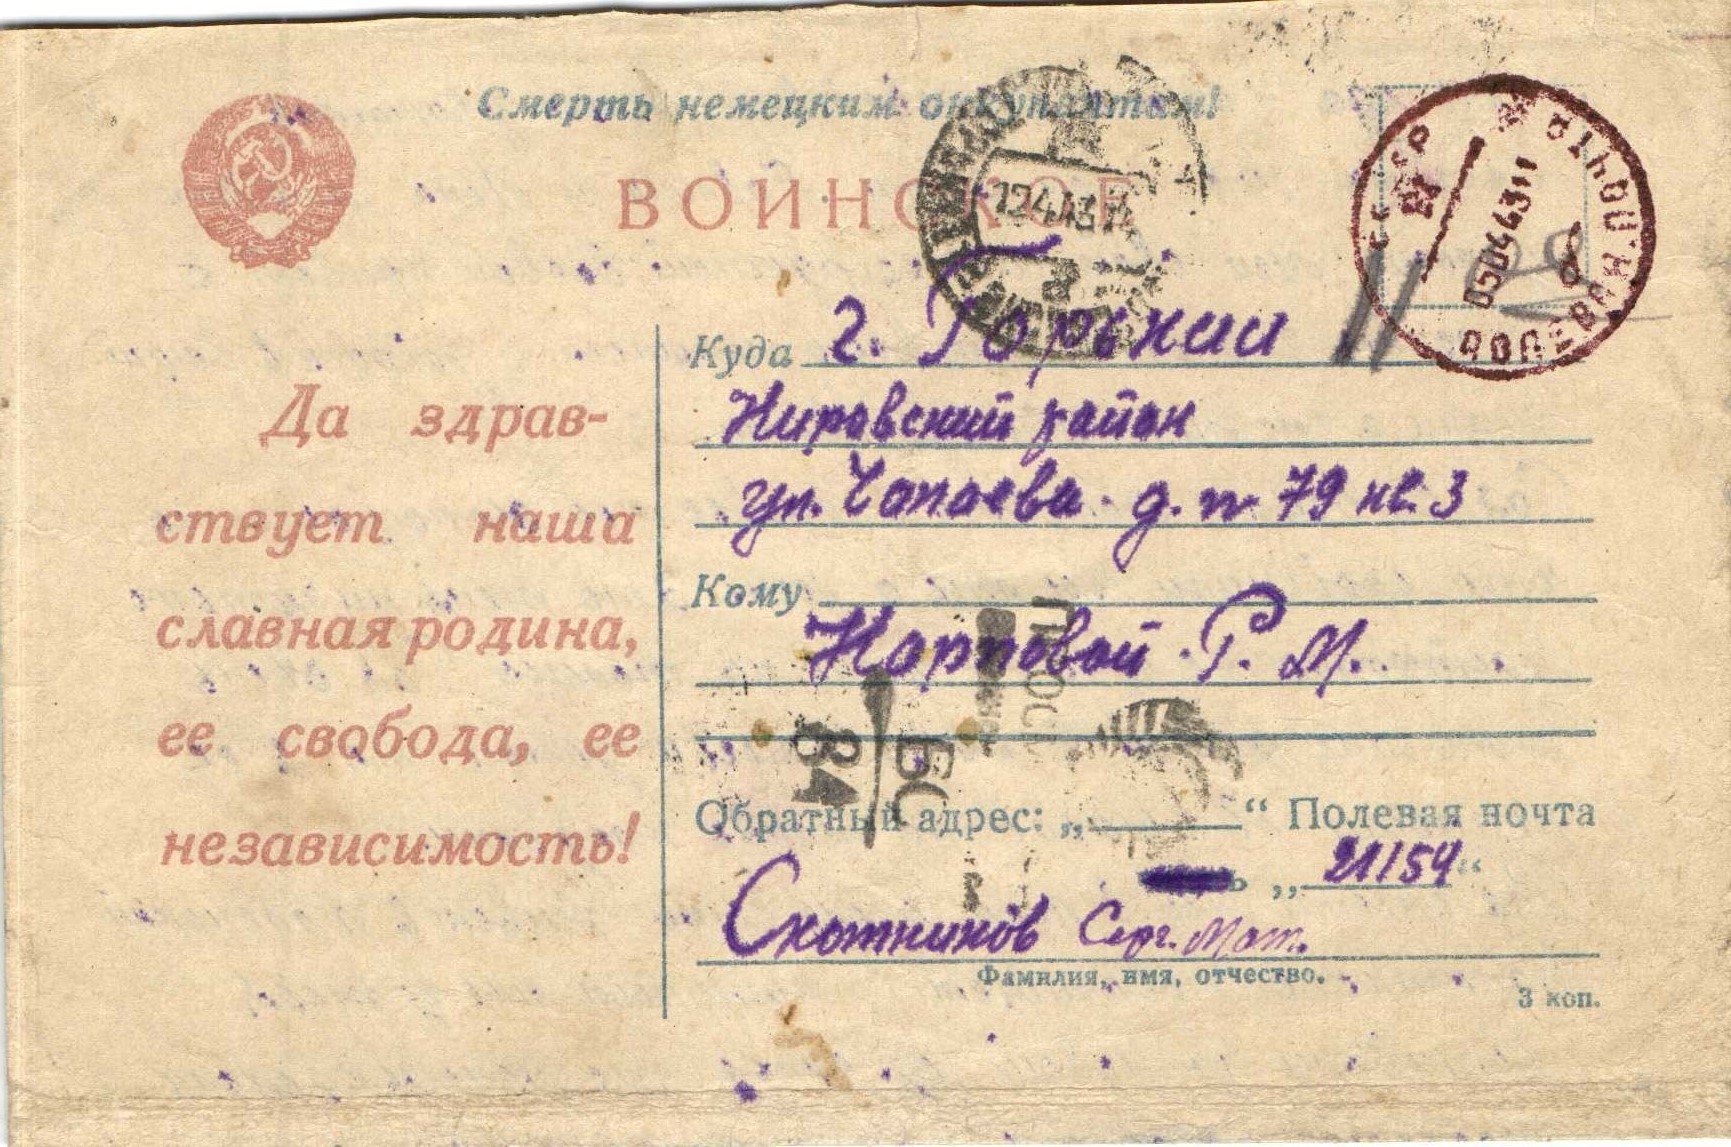 Смерть немецким оккупантам!
ВОИНСКОЕ
Да здрав-
ствует наша
славная родина,
ее свобода, ее
независимость!
Куда г. Горький
Кировский район
ул. Чапаева д. № 79 кв. 3
Кому
Карповой Р. М.
Обратный адрес: „ “ Полевая почта
„21154“
Скотников Серг. Мат.
Фамилия, имя, отчество.
3 коп.
12443
050443
БС
84